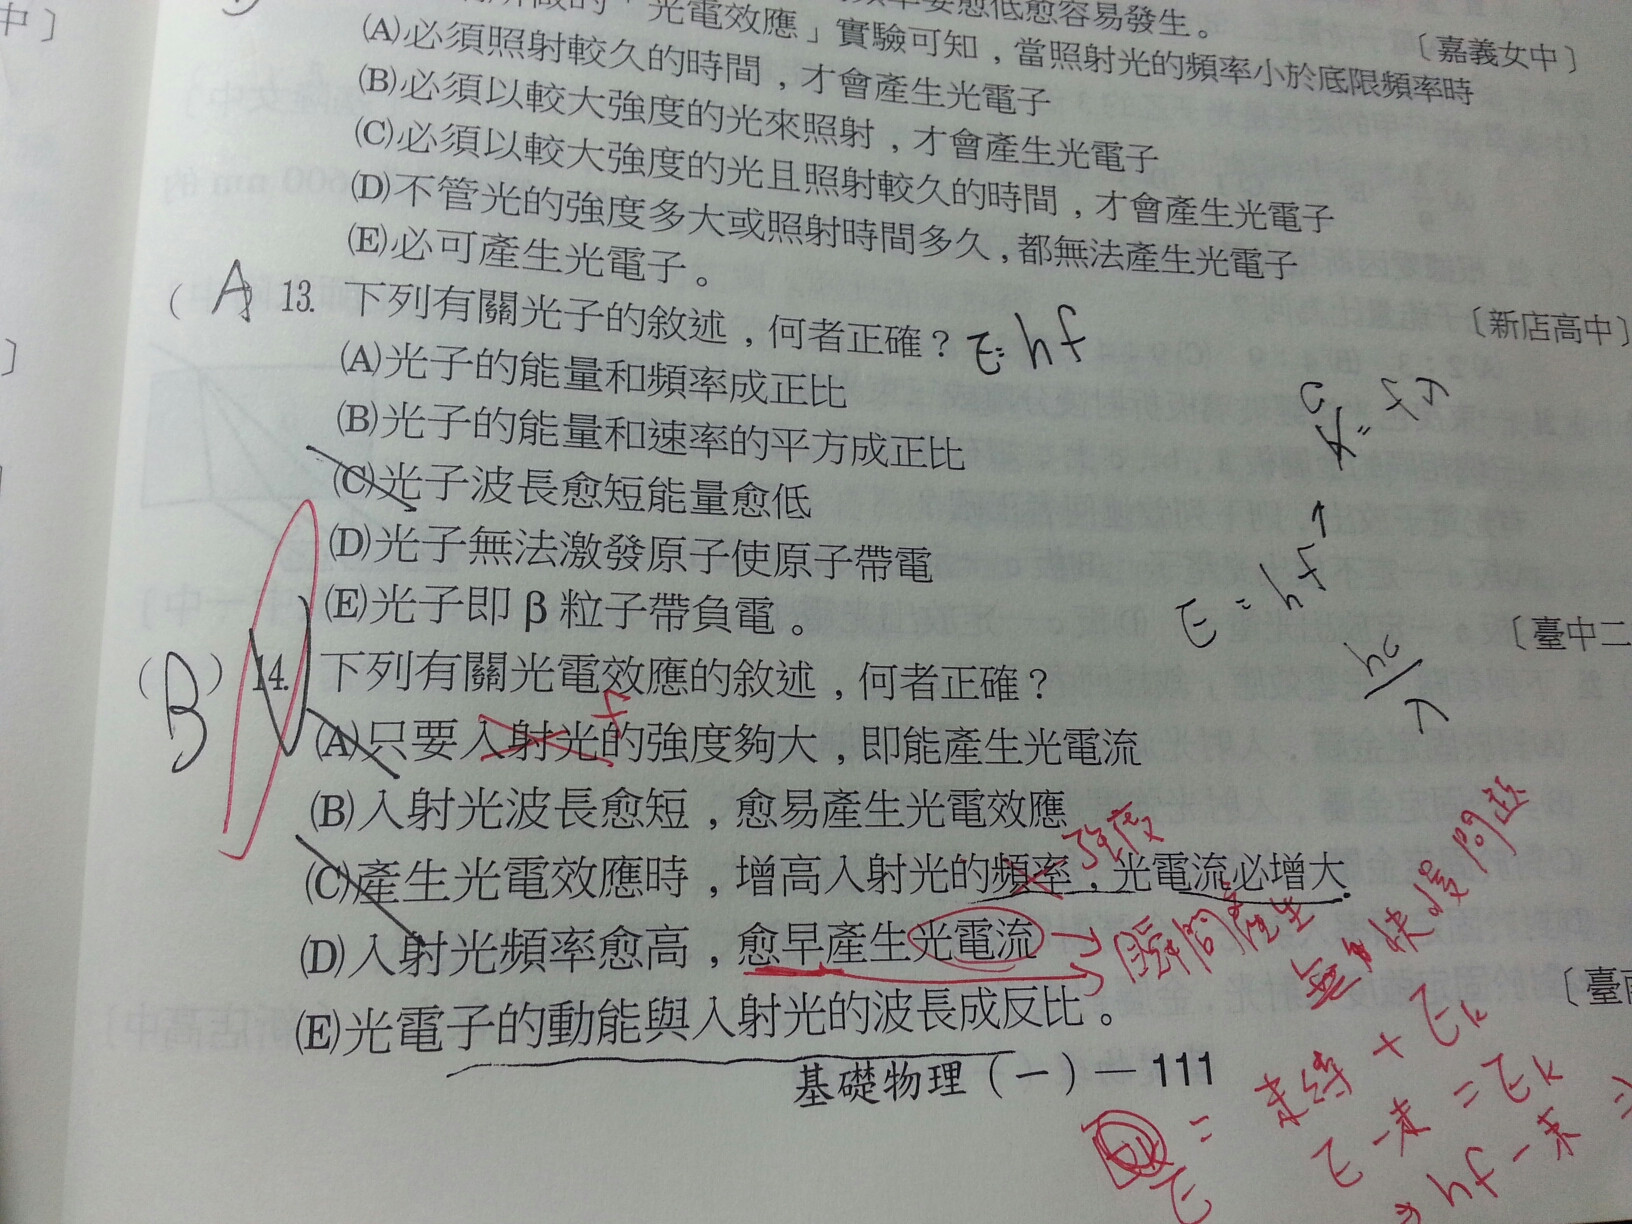 愈低愈容易發生。
「光電效應」實驗可知，當照射光的頻率小於底限頻率時
〔嘉義女中〕
(A)必須照射較久的時間，才會產生光電子
(B)必須以較大強度的光來照射，才會產生光電子
(C)必須以較大強度的光且照射較久的時間，才會產生光電子
(D)不管光的強度多大或照射時間多久，都無法產生光電子
(E)必可產生光電子。
(A) 13. 下列有關光子的敘述，何者正確？ E=hf
〔新店高中〕
(A)光子的能量和頻率成正比
(B)光子的能量和速率的平方成正比
(C)光子波長愈短能量愈低
(D)光子無法激發原子使原子帶電
(E)光子即β粒子帶負電。
E=hf↑
hc/λ
〔臺中二
(B) 14. 下列有關光電效應的敘述，何者正確？
f
(A)只要入射光的強度夠大，即能產生光電流
(B)入射光波長愈短，愈易產生光電效應
強度
(C)產生光電效應時，增高入射光的頻率，光電流必增大.
(D)入射光頻率愈高，愈早產生光電流→瞬間產生
無快慢問題
〔臺南
(E)光電子的動能與入射光的波長成反比。
基礎物理（一）—111
= 束縛 + Ek
E - 束 = Ek
hf - 束
E